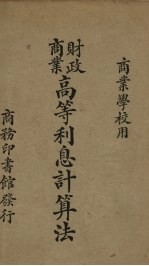 商業學校用
財政
商業
高等利息計算法
商務印書館發行